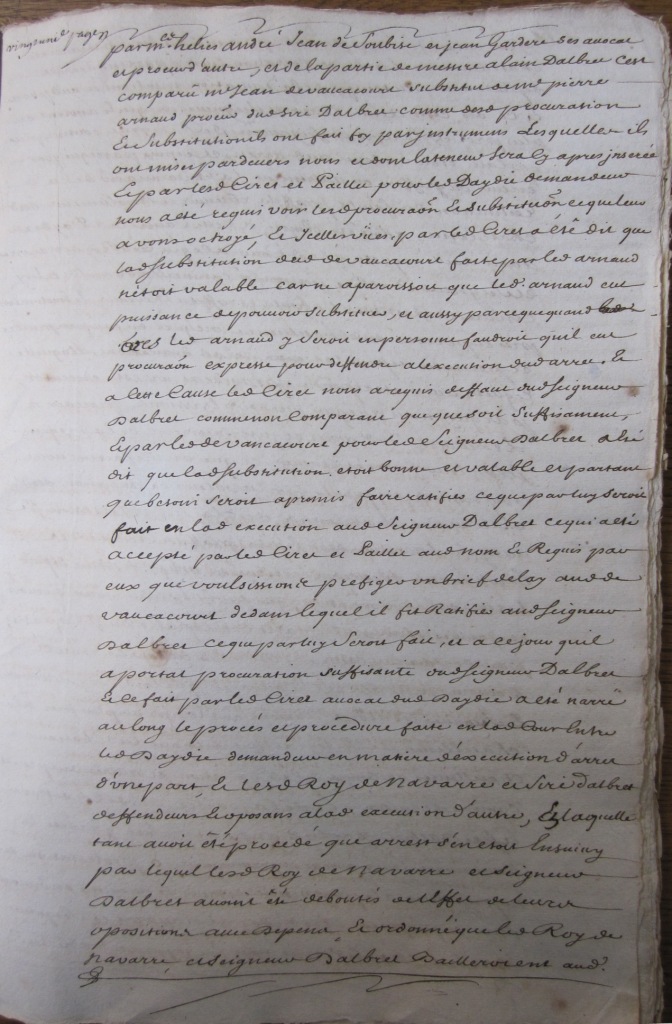 vingt une e page
par m.es helies andré Jean de Soubise et jean Gardere ses avocat
et procur d'autre, et de la partie de messire alain Dalbret C'est
comparu me Jean de vaucacourt substitut de me pierre
arnaud procur dud sire Dalbret comme de sa procuration
Et Substitution ils ont fait foy par jnstrumens Lesquelles ils
ont mises pardevers nous et dont la teneur Sera Cy apres jnserée
Et par lesd Ciret et Paillu pour led Daydie demandeur
nous a eté requis voir lesd procuraon et Substituon ce que leur
avons octroyé, Et Jcelles vües, par led Ciret a été dit que
lad Substitution dud de vaucacourt faite par led arnaud
n'étoit valable car ne aparoissou que led arnaud eut
puissance de pouvoir substituer, et aussy parce que quand
ores led arnaud y Seroit en personne faudroit qu'il eut
procuraon expresse pour deffendre a lexecution dud arret. Et
a Cette Cause led Ciret nous a requis deffaut dud Seigneur
Dalbret comme non Comparant que que soit Suffisament,
Et par led de Vaucacourt pour led Seigneur Dalbret a été
dit que lad Substitution etoit bonne et valable et partant
que besoin Seroit a promis faire ratifier ce que par luy Seroit
fait en lad execution aud Seigneur Dalbret ce qui a été
accepté par led Ciret et Paillu aud nom Et Requis par
eux que voulsissions prefiger un brief delay aud de
vaucacourt dedans lequel il fit Ratifier aud Seigneur
Dalbret ce que par luy Seroit fait, et a ce jour qu'il
aportat procuration suffisante dud Seigneur Dalbret
Et ce fait par led Ciret avocat dud Daydie a été narré
au long le procés et procedure faite en lad Cour Entre
led Daydie demandeur en matiere d'éxecution d'arret
d'vne part, Et lesd Roy de Navarre et Sire d'albret
deffendeurs Et oposans a lad execution d'autre, En laquelle
tant avoit été procedé que arrest s'en etoit Ensuivy
par lequel lesd Roy de Navarre et Seigneur
Dalbret avoint été deboutés de l'effet de leurs
opositions avec Depens, Et ordonné que led Roy de
Navarre, et Seigneur Dalbret Bailleroient aud.